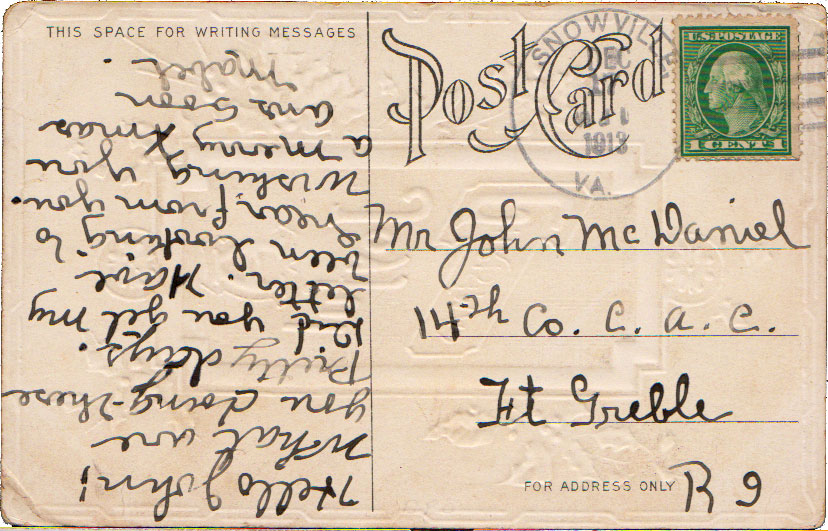 THIS SPACE FOR WRITING MESSAGES
Hello John!
What are
you doing these
Pretty days.
Did you get my
letter. Have
been looking to
hear from you.
Wishing you
a merry Xmas
ans soon
Mabel.
Post Card
SNOWVILLE,
DEC
1913
VA.
U.S. POSTAGE
1 CENTS 1
Mr John McDaniel
14th Co. C. A. C.
Ft Greble
FOR ADDRESS ONLY
R I